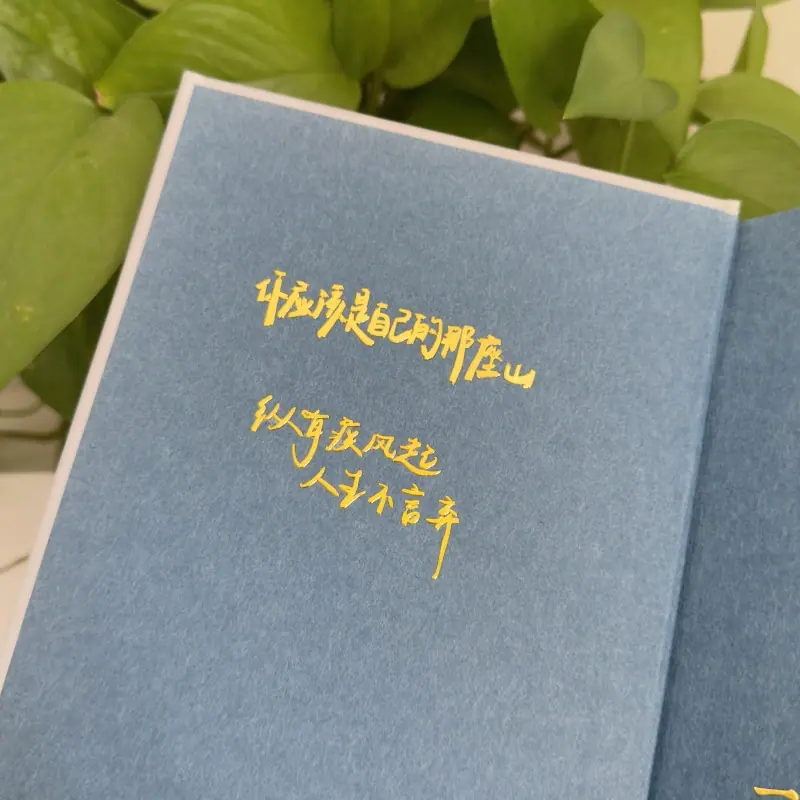 你应该是自己的那座山
纵有疾风起
人生不言弃